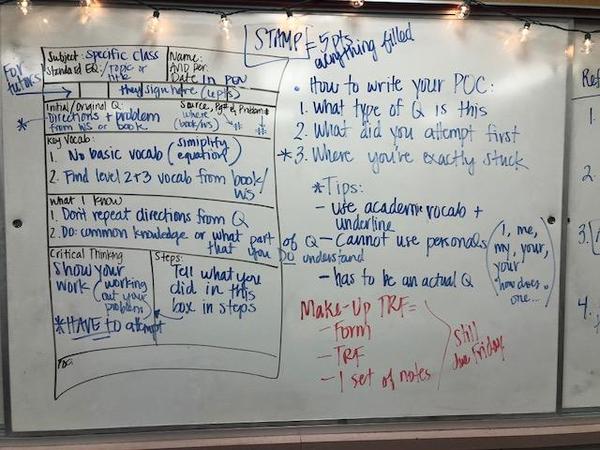 STAMP = 5 pts
everything filled
For
tutors!
Subject: specific class
Standard EQ: /topic or
title
Name:
Avid per:
Date: in pen
they sign here (1 pts)
Initial/Original Q:
* Directions + problem
from WS or book
Source, Pg# & Problem#
where
(book/ws)
Key Vocab:
1. No basic vocab (simplify
equation)
2. Find level 2+3 vocab from book/
WS
What I Know
1. Don't repeat directions from Q
2. Do: common knowledge or what part of Q
that you DO understand
Critical Thinking
Show your
work (working
out your
problem)
*HAVE to attempt
Steps:
Tell what you
did in this
box in steps
• How to write your POC:
1. What type of Q is this
2. What did you attempt first
*3. Where you're exactly stuck
*Tips:
- use academic vocab +
underline
- Cannot use personals (I, me,
my, your,
your
how does
one...)
- has to be an actual Q
Make-Up TRF=
- Form
- TRF
- 1 set of notes
Still
due Friday
Ref
1.
2.
3.
4.